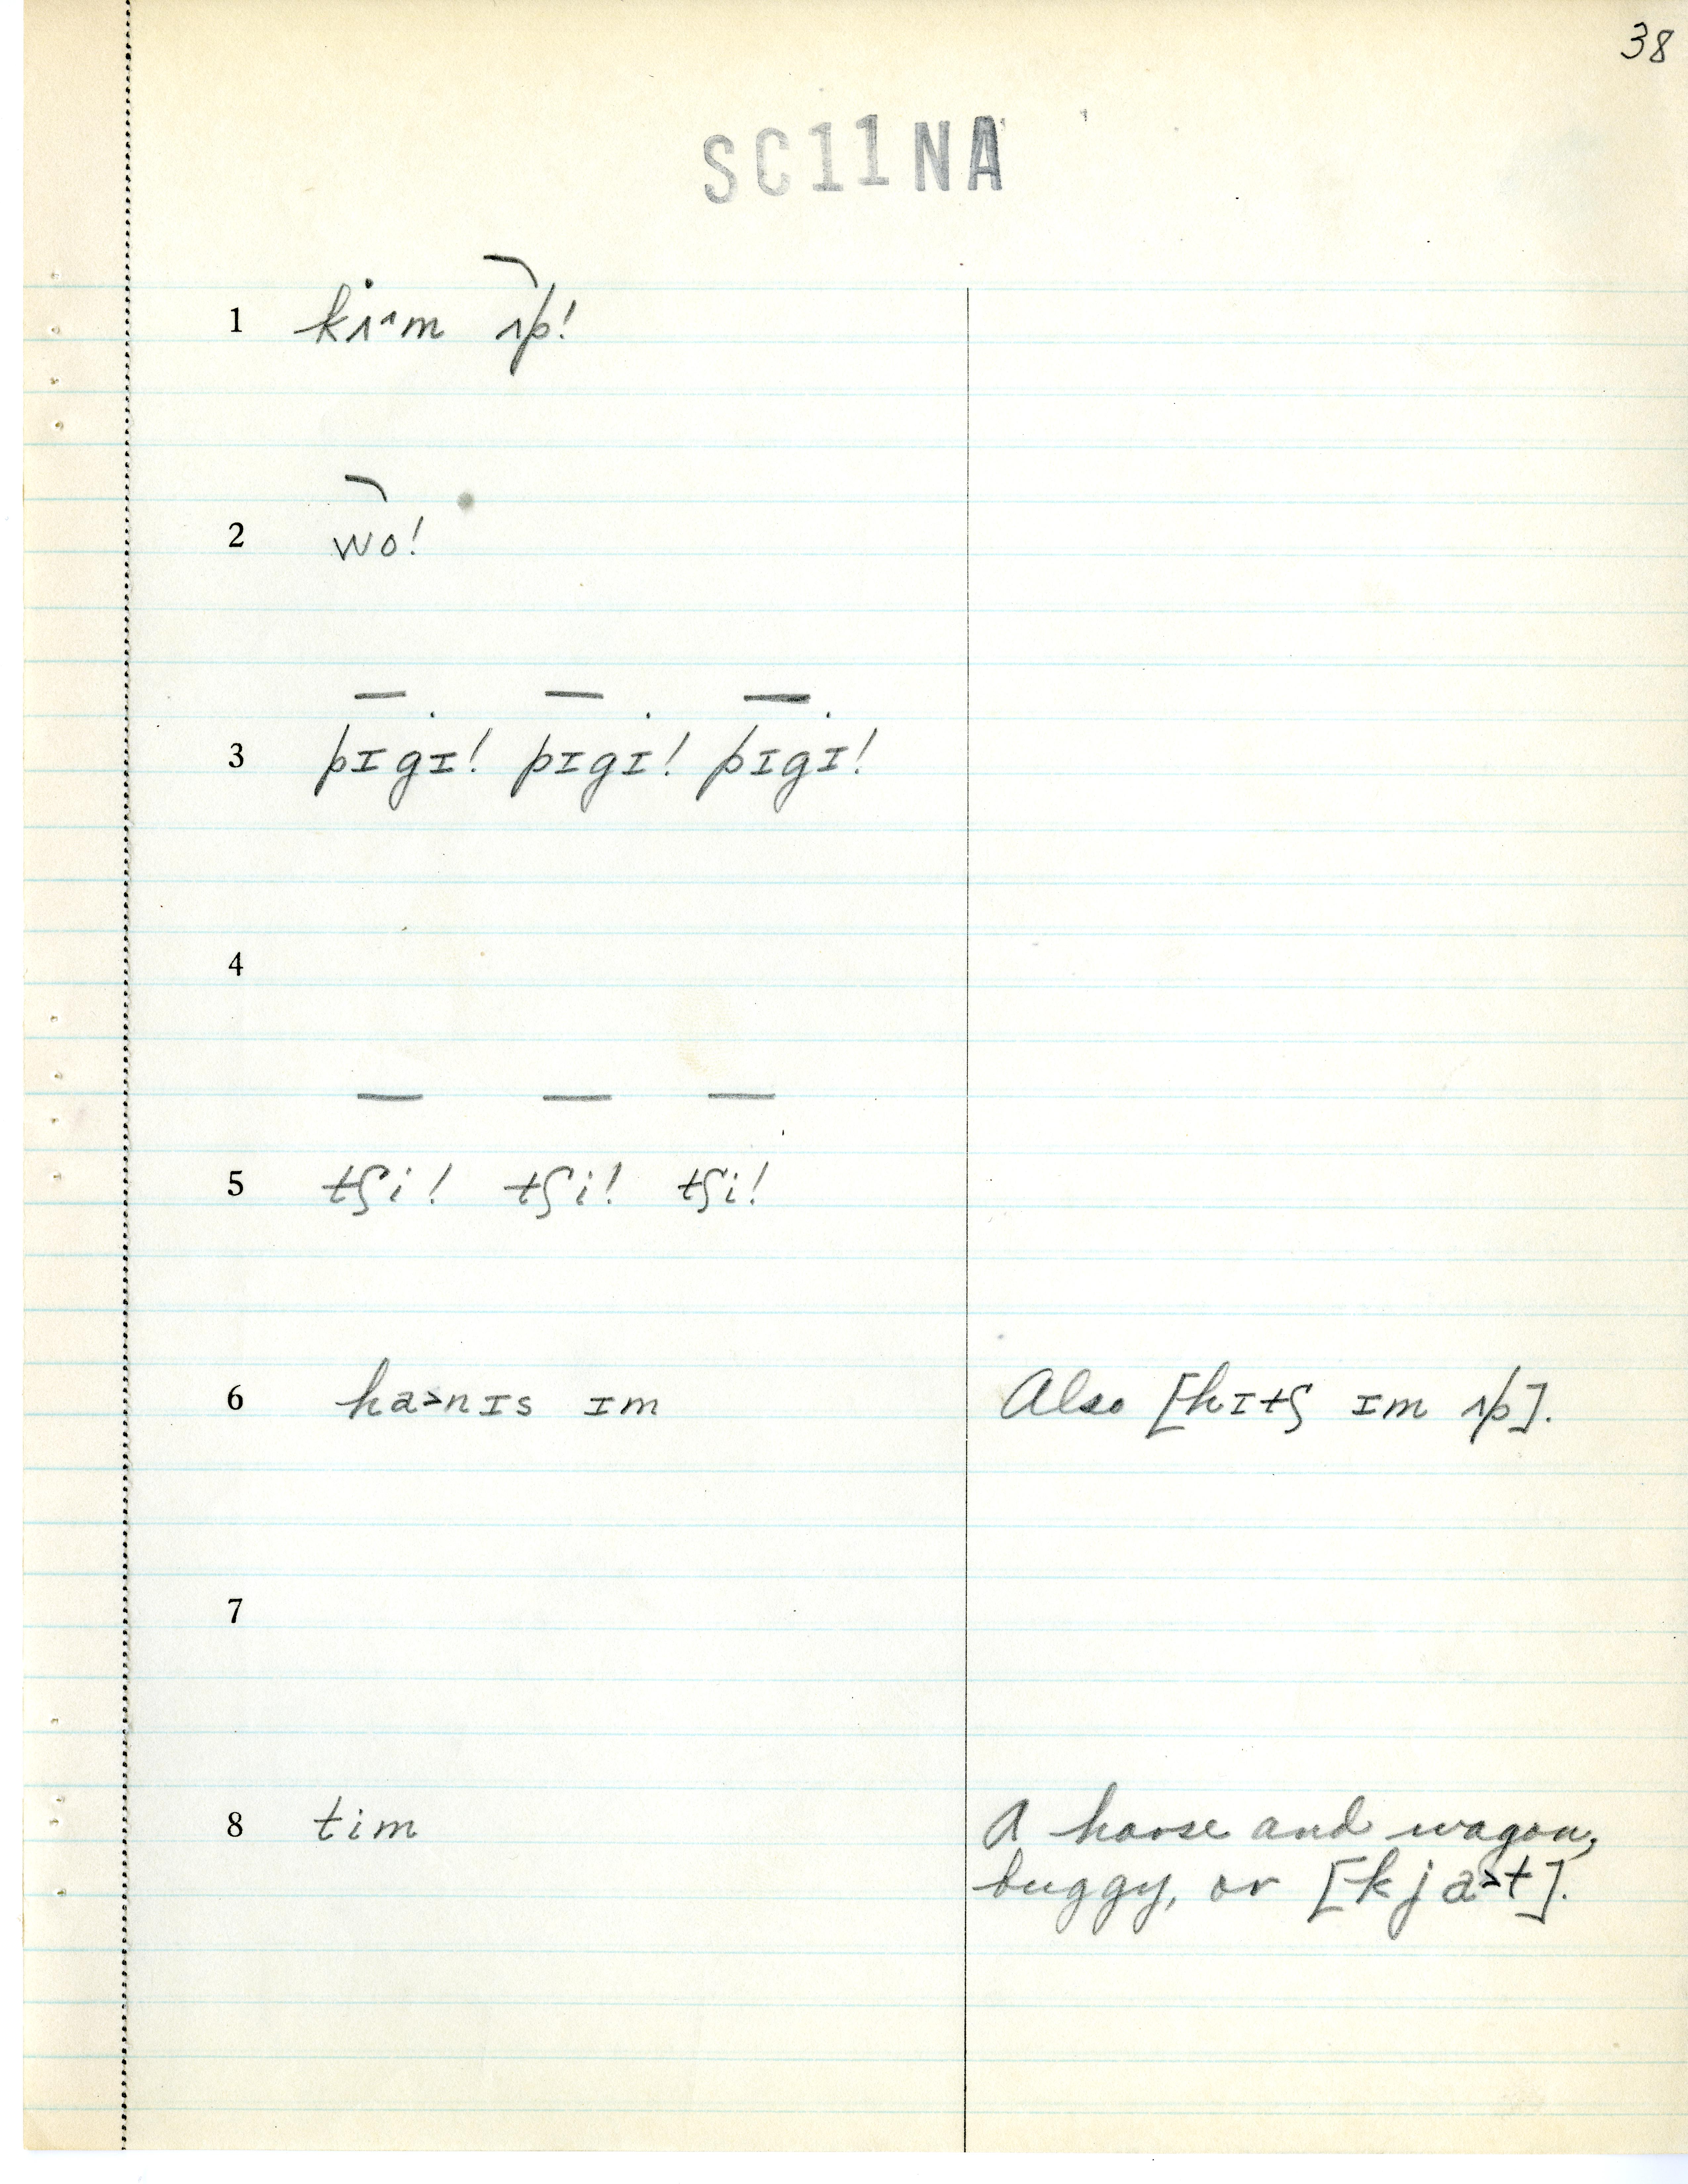 38
SC11NA
1 kɪ^m ʌp!
2 wo!
3 pɪgɪ! pɪgɪ! pɪgɪ!
4
5 tʃi! tʃi! tʃi!
6 ha>nɪs ɪm Also [hɪtʃ ɪm ʌp].
7
8 tim A horse and wagon,
buggy, or [kja>t].